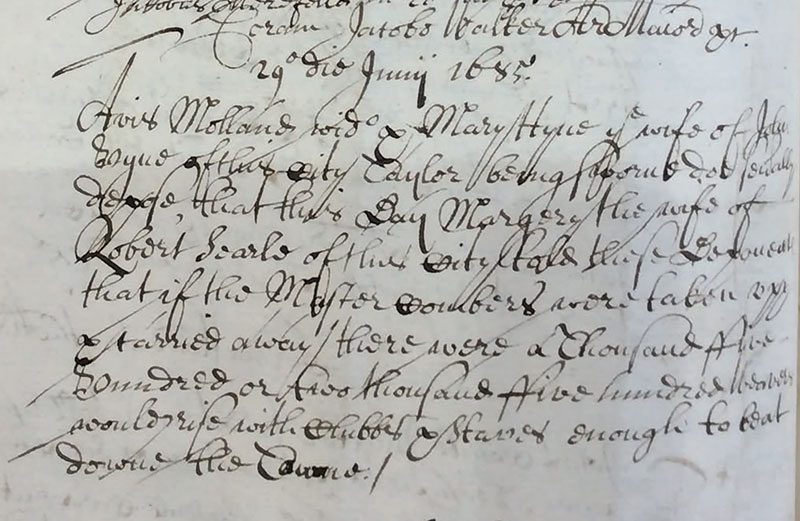 Coram Jacobo Walker Ar Maiord gt.
29º die Junij 1685.
Avis Molland wido & Mary Hyne ye wife of John
Hyne of this City Taylor being sworne doe seually
depose, that this Day Margery the wife of
Robert Searle of this City told these Deponents
that if the Master Combers were taken vpp
& carried away there were a Thousand ffive
Hundred or two thousand ffive hundred weavers
would rise with Clubbs & Staves enough to beat
downe the Towne./